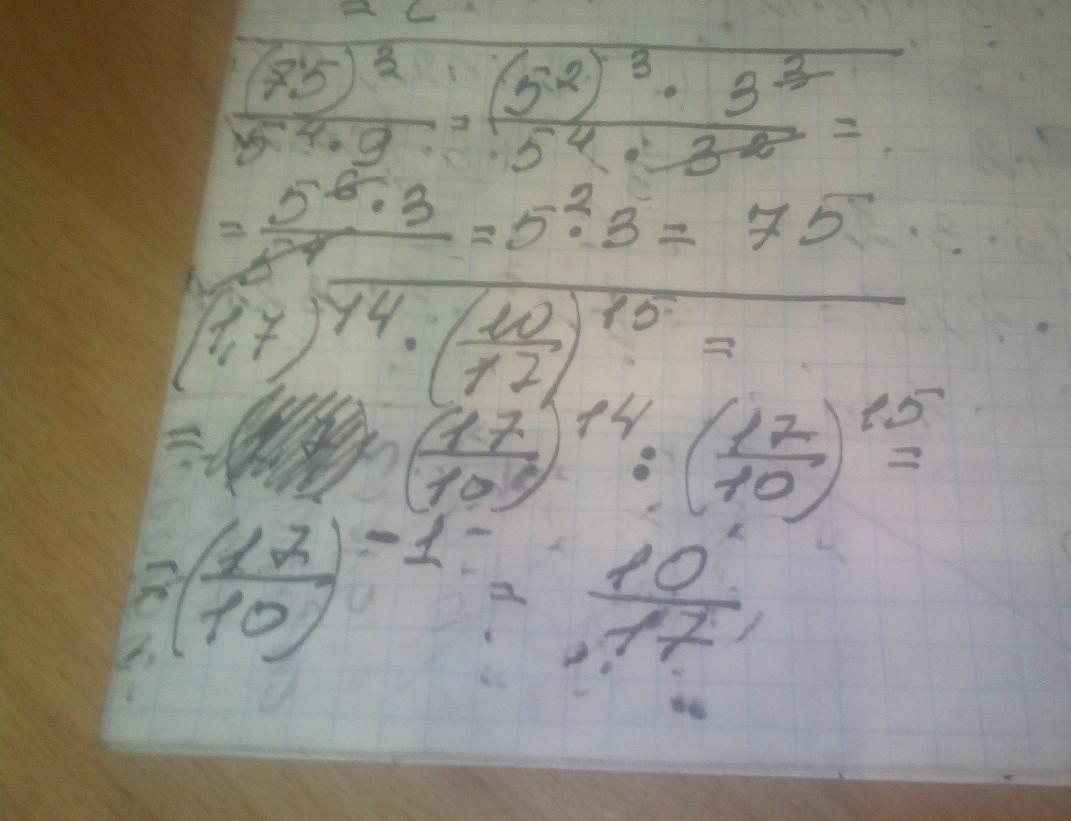 (75)^3 / 5^4 · 9 = (5^2)^3 · 3^3 / 5^4 · 3^2 =
= 5^6 · 3 / 5^4 = 5^2 · 3 = 75
(1,7)^14 · (10/17)^15 =
= (17/10)^14 : (17/10)^15 =
= (17/10)^-1 = 10/17